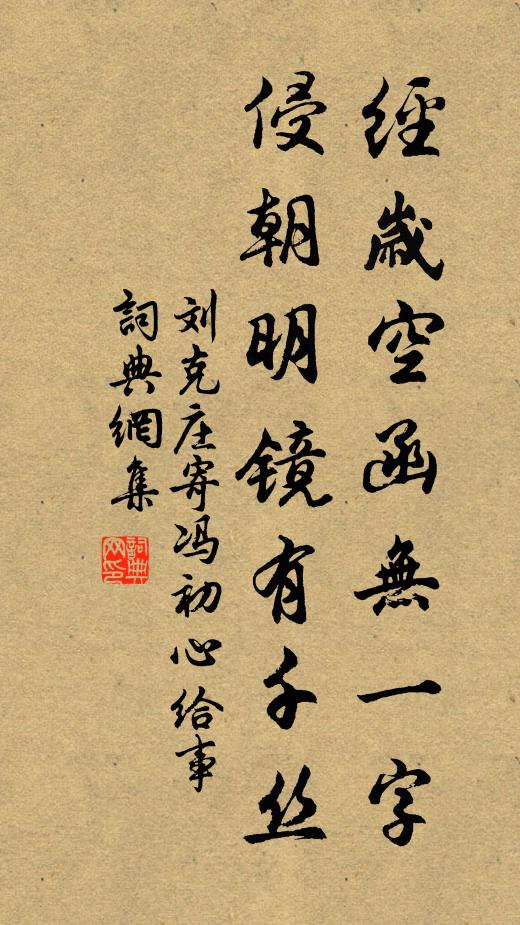 經歲空函無一字
侵朝明镜有千丝
刘克庄寄冯初心给事
詞典網集
詞典网印